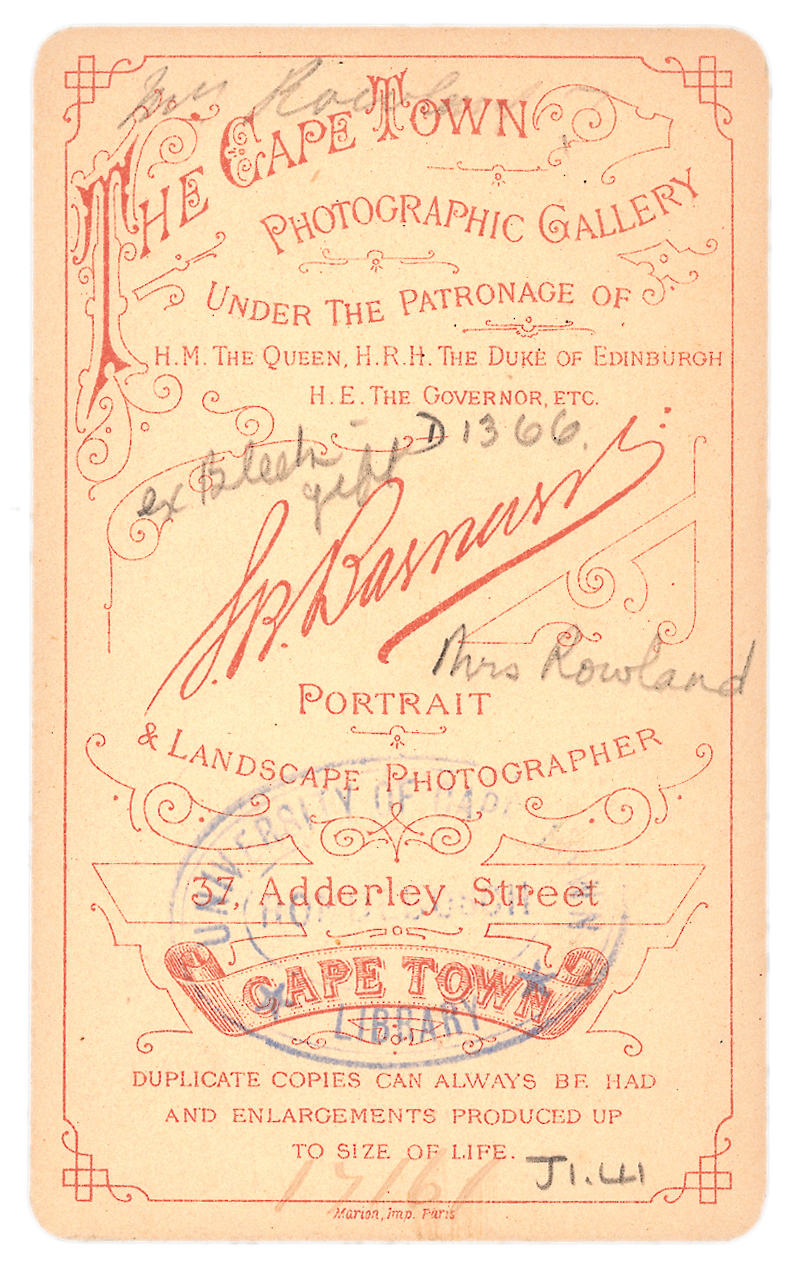 Mrs Rowland
THE CAPE TOWN
PHOTOGRAPHIC GALLERY
UNDER THE PATRONAGE OF
H.M. THE QUEEN, H.R.H. THE DUKE OF EDINBURGH
H.E. THE GOVERNOR, ETC.
D 1366.
ex Bleek
gift
S.B. Barnard
Mrs Rowland
PORTRAIT
& LANDSCAPE PHOTOGRAPHER
UNIVERSITY OF CAPE TOWN
37, Adderley Street
CAPE TOWN
LIBRARY
DUPLICATE COPIES CAN ALWAYS BE HAD
AND ENLARGEMENTS PRODUCED UP
TO SIZE OF LIFE.
J1.41
Marion, Imp. Paris